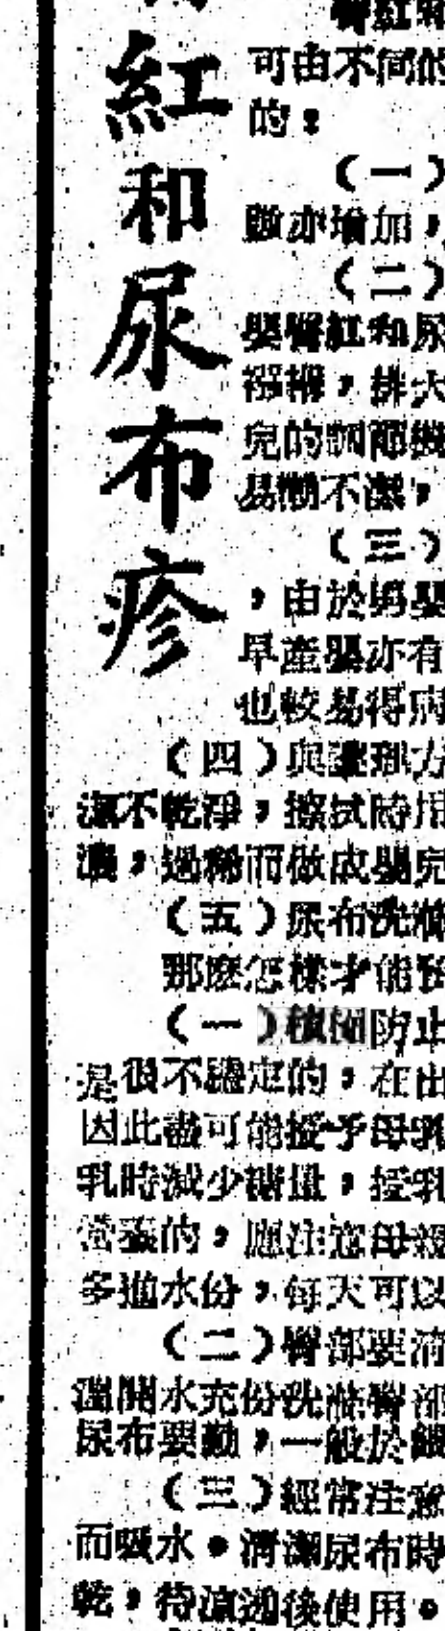 紅和尿布疹
臀紅和
可由不同的
的：
（一）
數亦增加，
（二）
嬰臀紅和尿
襁褓，排大
兒的調節機
易勤不潔，
（三）
，由於男嬰
早產嬰亦有
也較易得病
（四）與護理方
潔不乾淨，擦拭時用
濃，過稀而做成嬰兒
（五）尿布洗滌
那麼怎樣才能預
（一）積極防止
是很不穩定的，在出
因此盡可能授予母乳
乳時減少糖量，授乳
當養的，應注意母親
多進水份，每天可以
（二）臀部要清
溫開水充份洗滌臀部
尿布要勤，一般於餵
（三）經常注意
而吸水。清潔尿布時
乾，待涼透後使用。